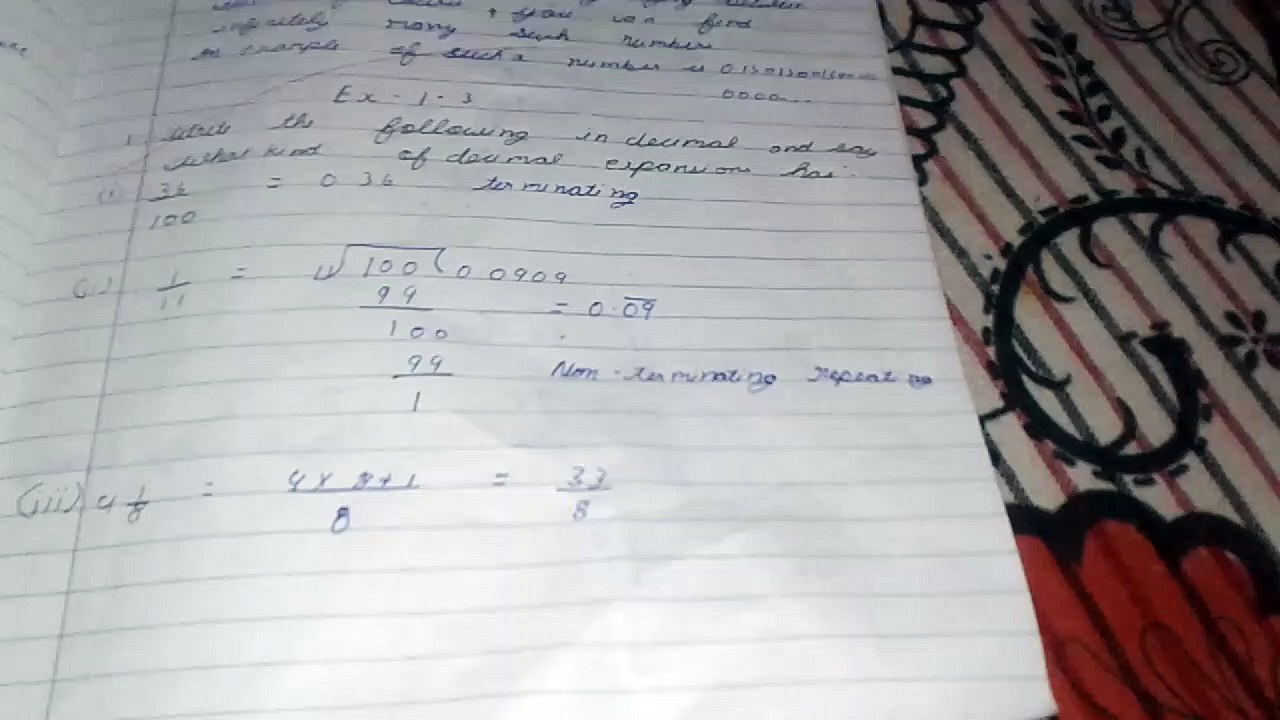 you can find
many such number
example of such a number is 0.150150015000
0000...
Ex - 1.3
1. Write the following in decimal and say
what kind of decimal expansion has.
(i) 36/100 = 0.36 terminating
(ii) 1/11 = 11√100(0.0909
99 = 0.0̅9̅
100
99 Non-terminating repeating
1
(iii) 4 1/8 = 4 x 8+1/8 = 33/8